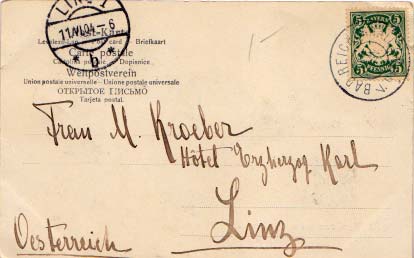 LINZ 1
11.VI.04-6
Post-Karte
Levelező-Lap — Post card — Briefkaart
Carte postale
Cartolina postale — Dopisnice
Weltpostverein
Union postale universelle — Unione postale universale
ОТКРЫТОЕ ПИСЬМО
Tarjeta postal.
BAYERN
5 5
PFENNIG
BAD REIC
Frau M. Kroeber
Hôtel Erzherzog Karl
Linz
Oesterreich